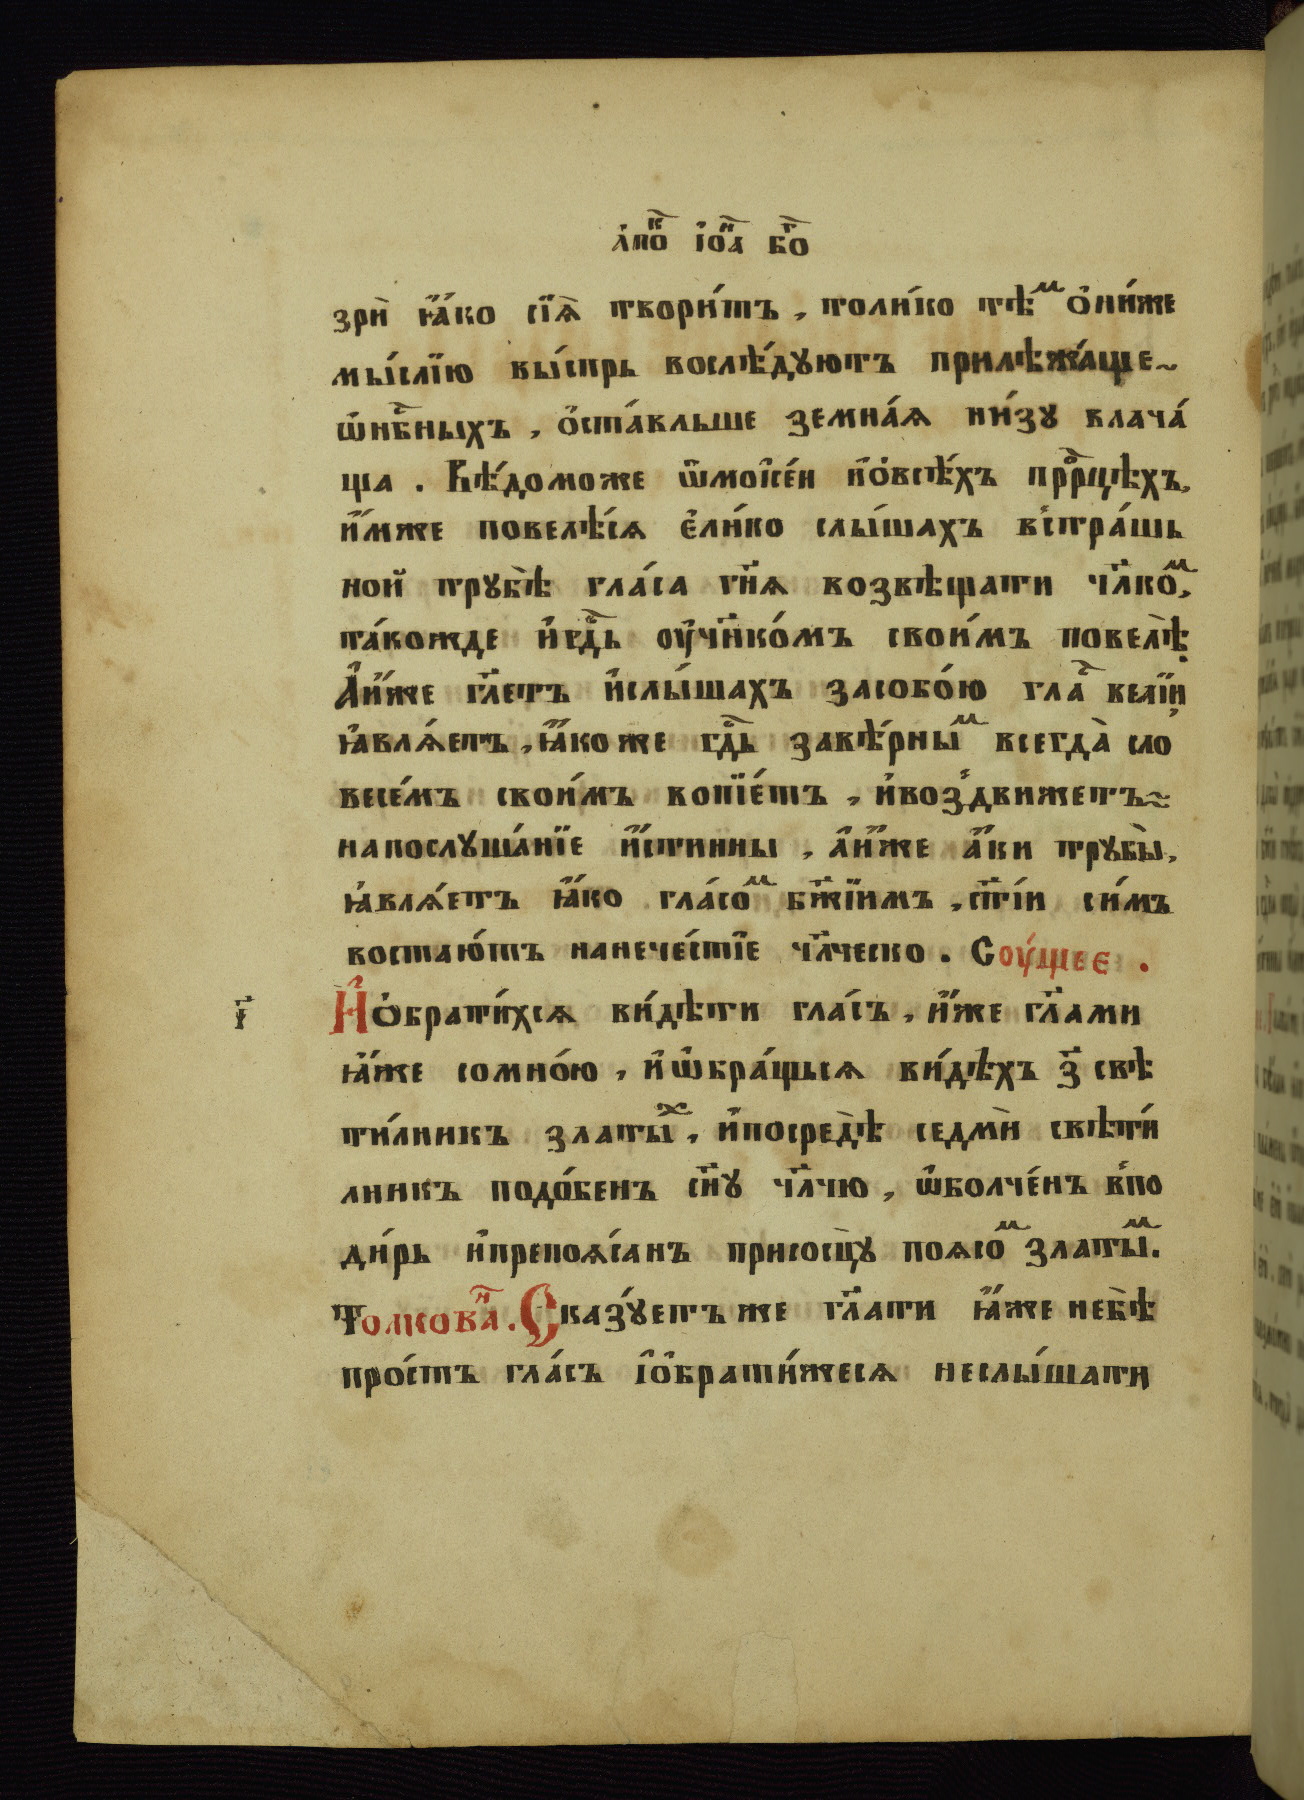 а҆по́к҇ і҆ѡ҃а бг҇о
зрѝ ꙗ҆́ко сїѧ̀ твори́тъ, толи́ко тѣⷨ о҆ни́же
мы́слїю вы́спрь восле́дуютъ прилѣжа́ще~
ѡ҆нб҇ныхъ, о҆ста́вльше земна́ѧ ни́зу влача́
ща. Вѣ́доможе ѡ҆моѵсе́и и҆о҆всѣ́хъ прⷪ҇рцѣхъ,
и҆́мже повелѣ́сѧ є҆ли́ко слы́шахъ в҆стра́шь
ной трꙋбѣ̀ гла́са гн҃ѧ возвѣщати чл҃коⷨ,
та́кожде и҆гдⷭ҇ь оу҆чн҃ико́мъ свои́мъ повелѣ̀.
А҆и҆́же гл҃етъ и҆слы́шахъ засобо́ю глаⷭ҇ велїи
ꙗ҆влѧ́етъ, ꙗ҆́коже гдⷭ҇ь завѣ́рныⷨ всегда̀ сло
весе́мъ свои́мъ вопїе́тъ, и҆возд҆вижетъ~
напослꙋша́нїе и҆́стинны, а҆и҆́же а҆́ки трꙋбы̀,
ꙗ҆влѧ́етъ ꙗ҆́ко гла́соⷨ бж҃їимъ, ст҃і́и си́мъ
востаю́тъ нанече́стїе чл҃ческо. Соу́щее.
г҃і И҆о҆брати́хсѧ ви́дѣти гла́съ, и҆́же гл҃ами
ꙗ҆́же сомно́ю, и҆ѡ҆бра́щьсѧ ви́дѣхъ з҃ свѣ
ти́лникъ златыⷯ, и҆посредѣ̀ седмѝ свѣти́
лникъ подо́бенъ сн҃ꙋ чл҃чю, ѡ҆болче́нъ в҆по
ди́рь и҆препоѧ́санъ присосцꙋ̀ поѧсоⷨ златыⷨ.
Толковаⷩ҇. Сказꙋ́етъже гл҃ати ꙗ҆́же небѣ̀
про́стъ гла́съ і҆о҆брати́жесѧ неслы́шати